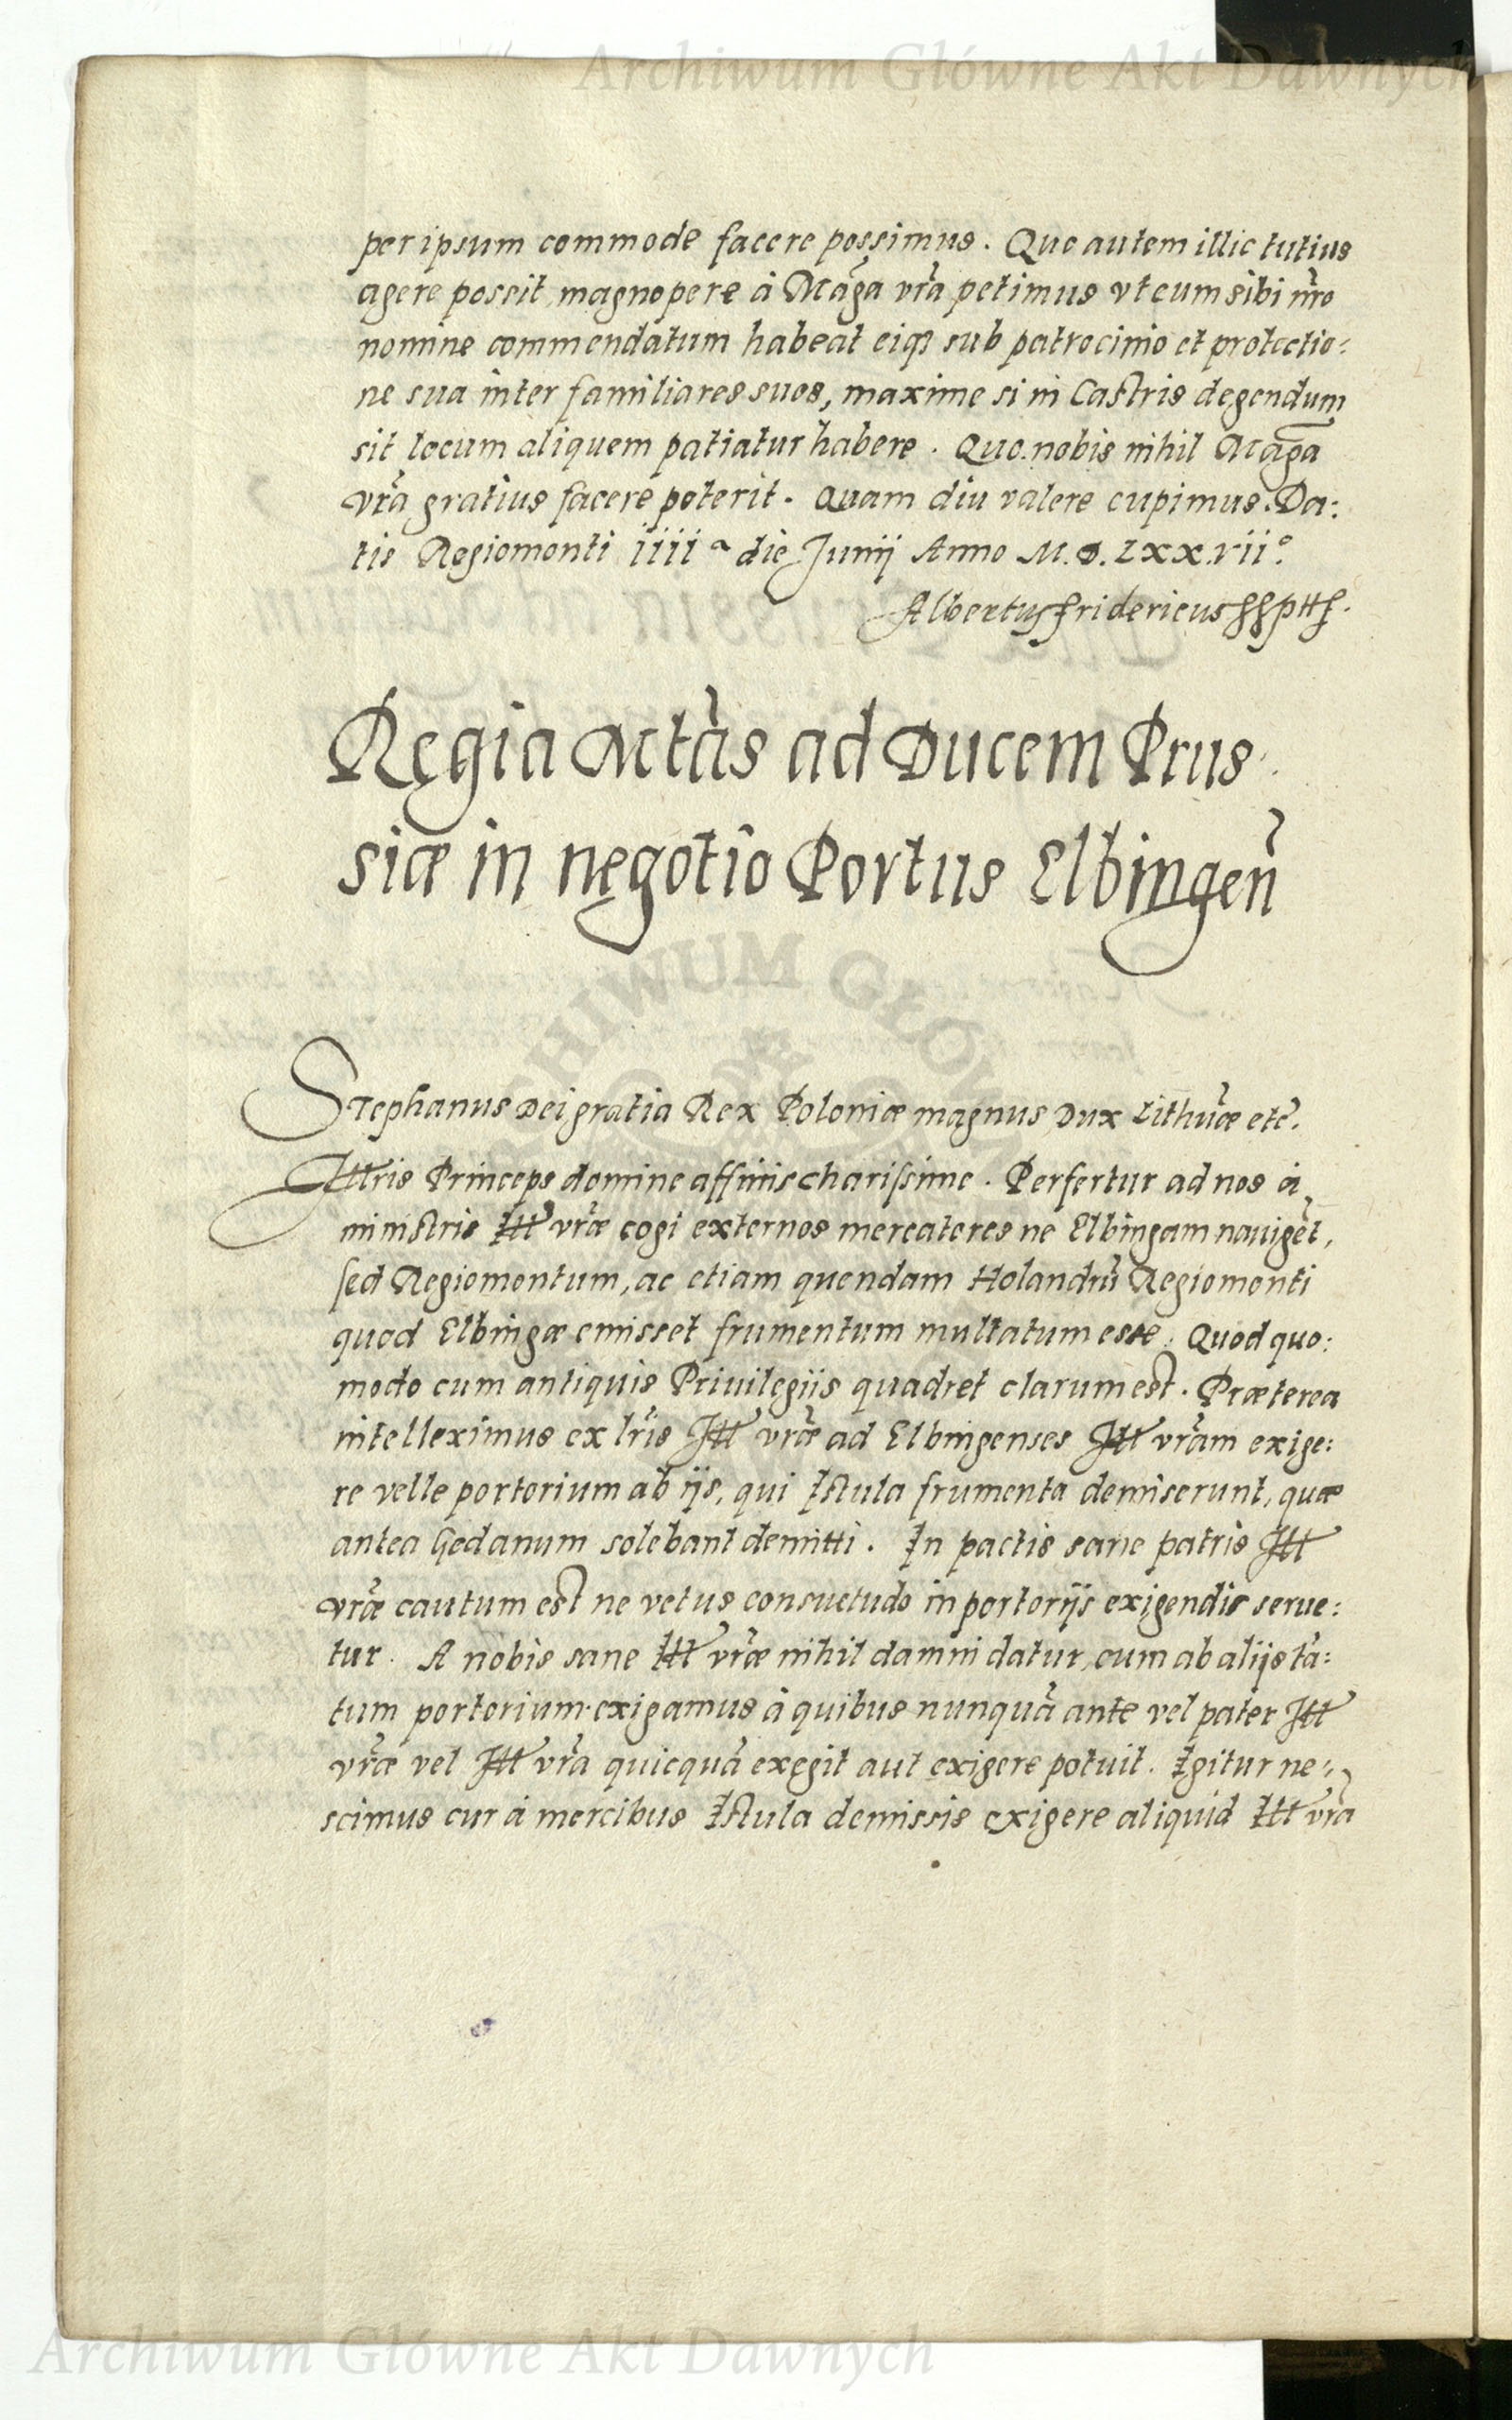 Archiwum Główne Akt Dawnych
per ipsum commode facere possimus. Quo autem illic tutius
agere possit, magnopere à Mag̃a vr̃a petimus vt eum sibi nr̃o
nomine commendatum habeat eiqȝ sub patrocinio et protectio:
ne sua inter familiares suos, maxime si in Castris degendum
sit locum aliquem patiatur habere. Quo nobis nihil Mag̃a
vr̃a gratius facere poterit. Quam diu valere cupimus. Da:
tis Regiomonti iiii a die Junij Anno M.D.Lxx.vii°
Albertus Fridericus
Regia Mtàs ad Ducem Prus
siæ in negotio Portus Elbingeñ
Stephanus Dei gratia Rex Poloniæ magnus Dux Lithũæ etc̃.
Illris Princeps domine affinis charissime. Perfertur ad nos à
ministris Ill vr̃æ cogi externos mercatores ne Elbingam nauigẽt,
sed Regiomontum, ac etiam quendam Holandrũ Regiomonti
quod Elbingæ emisset frumentum multatum esse. Quod quo:
modo cum antiquis Priuilegiis quadret clarum est. Præterea
intelleximus ex lr̃is Ill vr̃æ ad Elbingenses Ill vr̃am exige:
re velle portorium ab ijs, qui Istula frumenta demiserunt, quæ
antea Gedanum solebant demitti. In pactis sane patris Ill
vr̃æ cautum est ne vetus consuetudo in portorijs exigendis serue:
tur. A nobis sane Ill vr̃æ nihil damni datur, cum ab alijs tã:
tum portorium exigamus à quibus nunquã ante vel pater Ill
vr̃æ vel Ill vr̃a quicquã exegit aut exigere potuit. Igitur ne:
scimus cur à mercibus Istula demissis exigere aliquid Ill vr̃a
Archiwum Główne Akt Dawnych